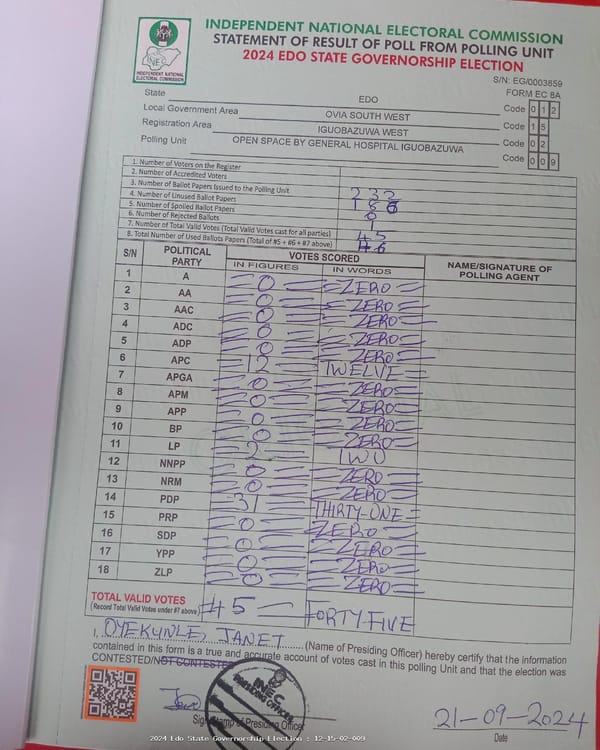 INDEPENDENT NATIONAL ELECTORAL COMMISSION
STATEMENT OF RESULT OF POLL FROM POLLING UNIT
2024 EDO STATE GOVERNORSHIP ELECTION
INEC
INDEPENDENT NATIONAL ELECTORAL COMMISSION
S/N: EG/0003859
FORM EC 8A
State EDO Code 0 1 2
Local Government Area OVIA SOUTH WEST Code 1 5
Registration Area IGUOBAZUWA WEST Code 0 2
Polling Unit OPEN SPACE BY GENERAL HOSPITAL IGUOBAZUWA Code 0 0 9
1. Number of Voters on the Register
2. Number of Accredited Voters
3. Number of Ballot Papers Issued to the Polling Unit 232
4. Number of Unused Ballot Papers 186
5. Number of Spoiled Ballot Papers 0
6. Number of Rejected Ballots 1
7. Number of Total Valid Votes (Total Valid Votes cast for all parties) 45
8. Total Number of Used Ballots Papers (Total of #5 + #6 + #7 above) 46
S/N POLITICAL PARTY VOTES SCORED NAME/SIGNATURE OF POLLING AGENT
IN FIGURES IN WORDS
1 A 0 ZERO
2 AA 0 ZERO
3 AAC 0 ZERO
4 ADC 0 ZERO
5 ADP 0 ZERO
6 APC 12 TWELVE
7 APGA 0 ZERO
8 APM 0 ZERO
9 APP 0 ZERO
10 BP 0 ZERO
11 LP 2 TWO
12 NNPP 0 ZERO
13 NRM 0 ZERO
14 PDP 31 THIRTY-ONE
15 PRP 0 ZERO
16 SDP 0 ZERO
17 YPP 0 ZERO
18 ZLP 0 ZERO
TOTAL VALID VOTES
(Record Total Valid Votes under #7 above) 45 FORTY-FIVE
I, OYEKUNLE, JANET (Name of Presiding Officer) hereby certify that the information
contained in this form is a true and accurate account of votes cast in this polling Unit and that the election was
CONTESTED/NOT CONTESTED
INEC
PRESIDING OFFICER
Sign/Stamp of Presiding Officer
21-09-2024
Date
2024 Edo State Governorship Election : 12-15-02-009